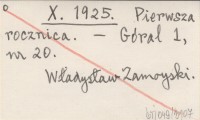 X. 1925. Pierwsza
rocznica. – Góral 1,
nr 20.
Władysław Zamoyski.